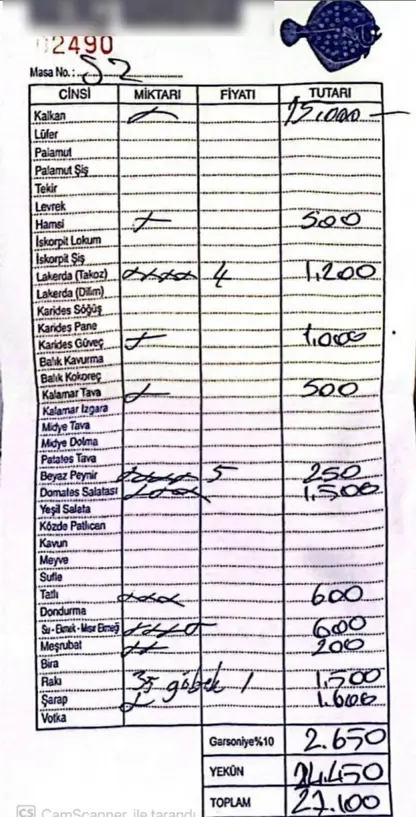 02490
Masa No.: 52
CİNSİ MİKTARI FİYATI TUTARI
Kalkan 15.000
Lüfer
Palamut
Palamut Şiş
Tekir
Levrek
Hamsi 500
İskorpit Lokum
İskorpit Şiş
Lakerda (Takoz) 4 1,200
Lakerda (Dilim)
Karides Söğüş
Karides Pane
Karides Güveç 1,000
Balık Kavurma
Balık Kokoreç
Kalamar Tava 500
Kalamar Izgara
Midye Tava
Midye Dolma
Patates Tava
Beyaz Peynir 5 250
Domates Salatası 1,500
Yeşil Salata
Közde Patlıcan
Kavun
Meyve
Sufle
Tatlı 600
Dondurma
Su - Ekmek - Mısır Ekmeği 600
Meşrubat 200
Bira
Rakı 35 göbek 1 1.500
Şarap 1.600
Votka
Garsoniye%10 2.650
YEKÜN 24.450
TOPLAM 27.100
CS CamScanner ile tarandı